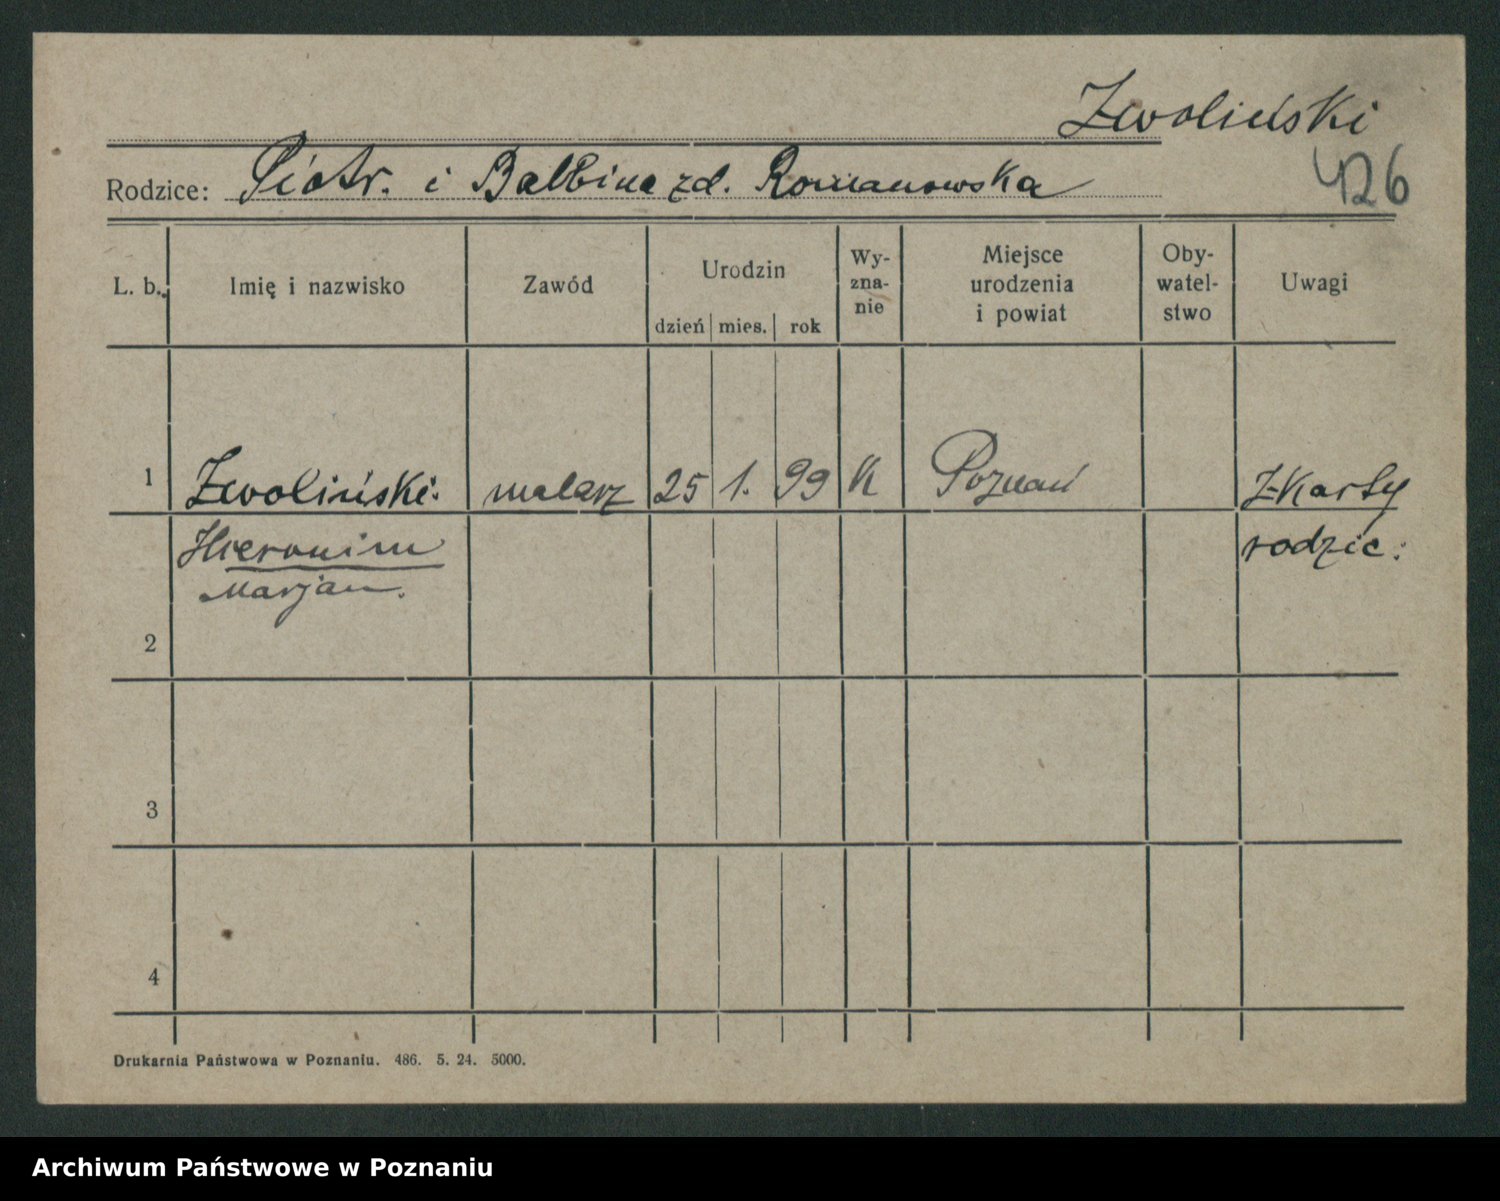 Zwoliński
Rodzice: Piotr. i Balbina zd. Romanowska
426
L. b. Imię i nazwisko Zawód Urodzin Wy-zna-nie Miejsce urodzenia i powiat Oby-watel-stwo Uwagi
dzień mies. rok
1 Zwoliński. malarz 25 1. 99 K Poznań Z Karty
Hieronim rodzic.
Marjan.
2
3
4
Drukarnia Państwowa w Poznaniu. 486. 5. 24. 5000.
Archiwum Państwowe w Poznaniu